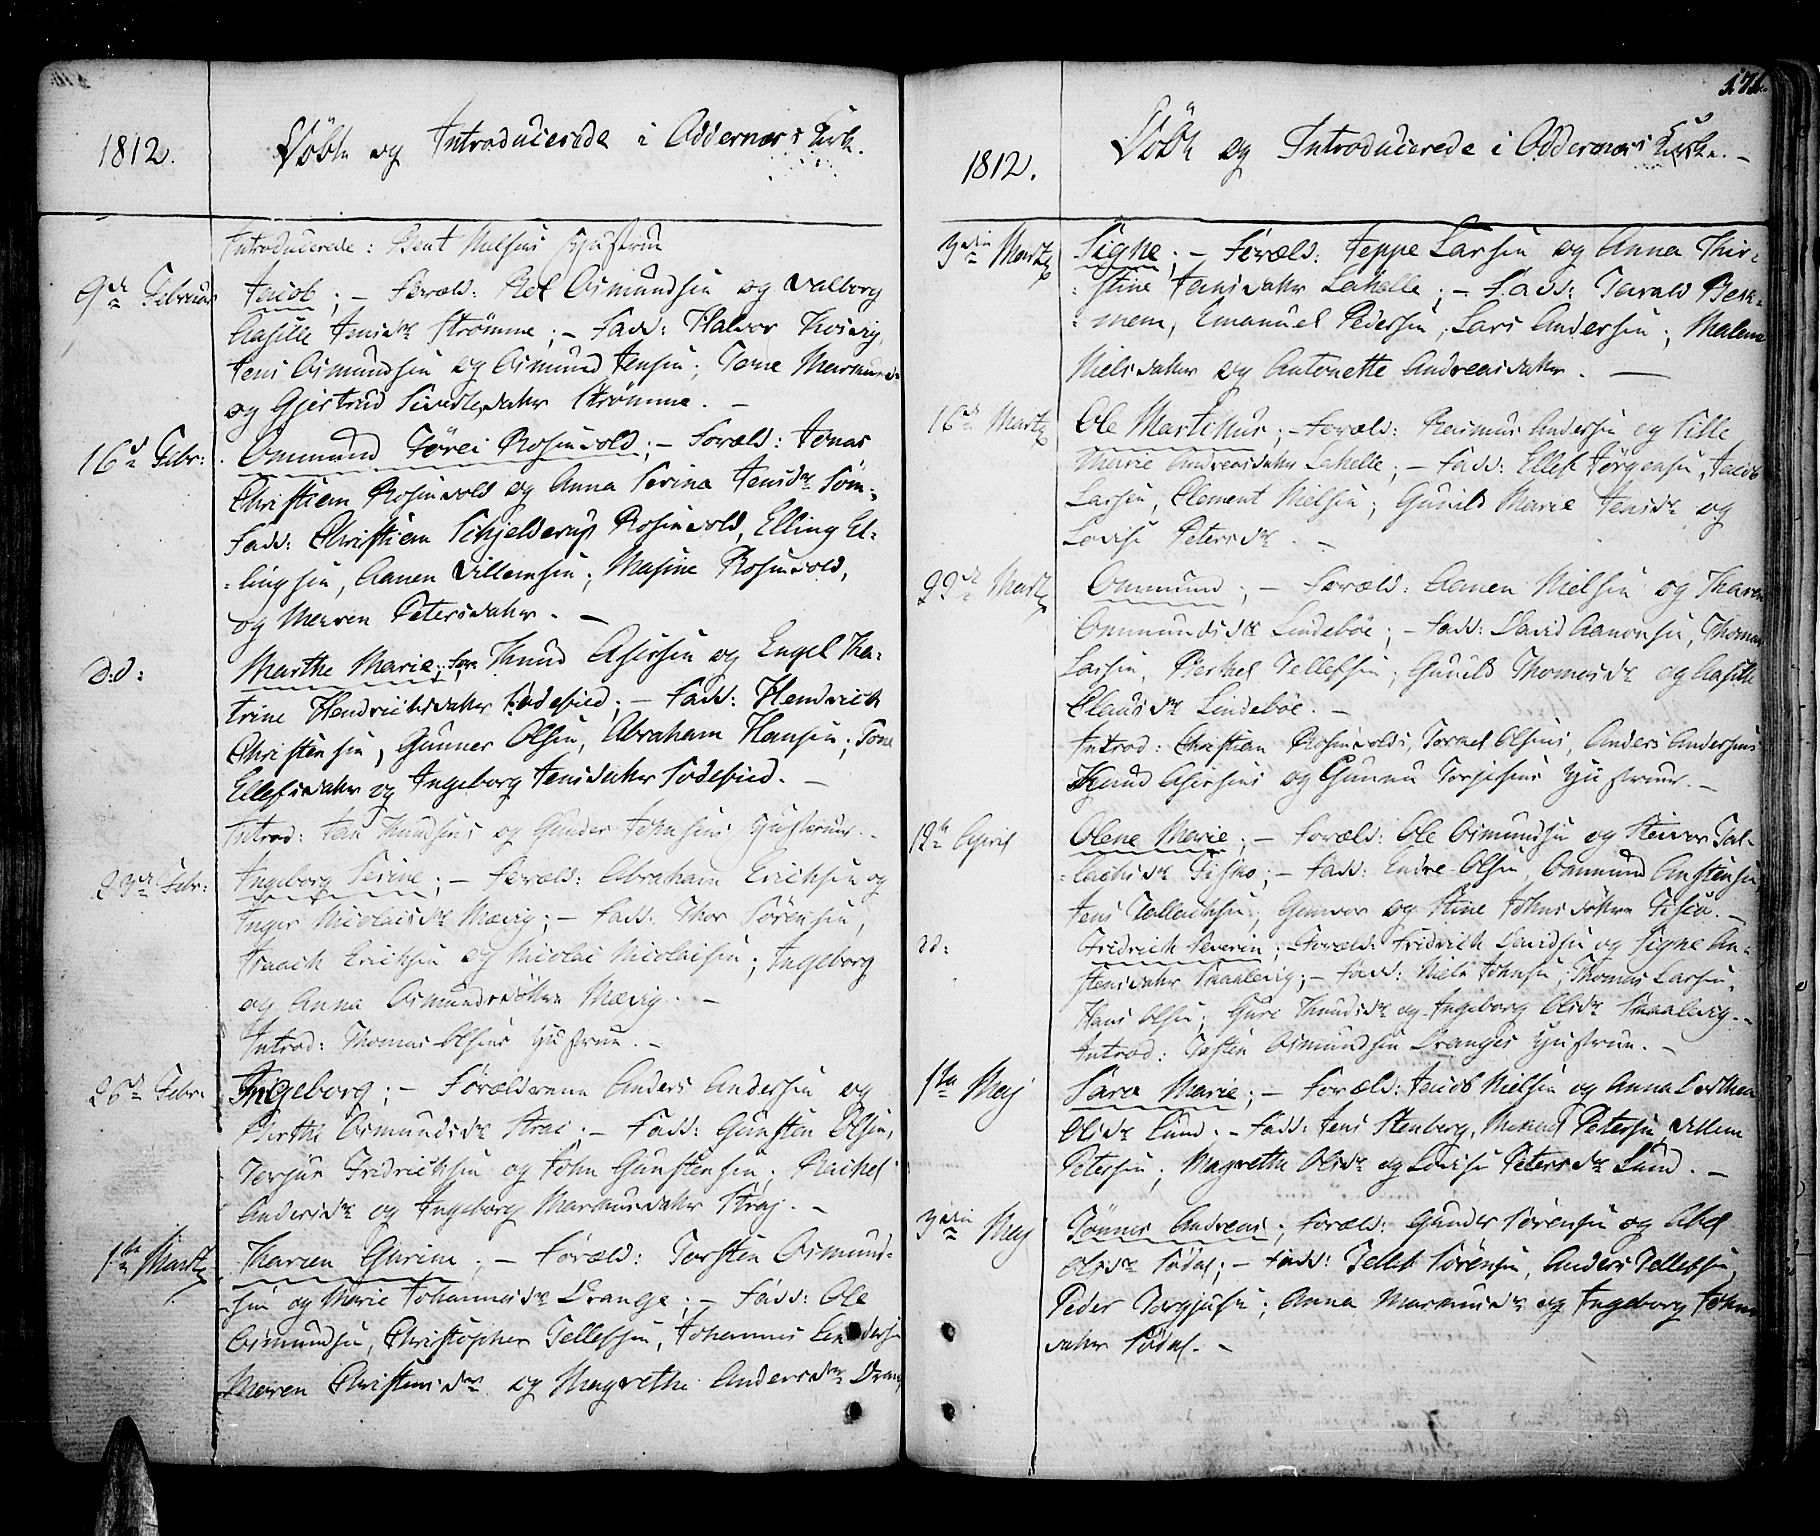 1812.
Döbte og Introducerede i Oddernæs Kirke.
Introducerede: Bent Nielsens Hustrue
9de Februar Jacob; - Foræld: Roe Osmundsen og Valborg
Aasille Jensdr Strømme; - Fadd: Halvor Kosvig,
Jens Osmundsen og Osmund Jensen; Tone
og Gjertrud Sivertsdatter Strømme. -
16de Febr: Ommund Törei Rosenvold; - Foræld: Jonas
Christian Rosenvold og Anna Serina Jensdr Söm-
Fadd: Christian Schjelderup Rosenvold, Elling El-
lingsen, Aanen Villemsen; Masine Rosenvold,
og Maren Petersdatter. -
d.d: Marthe Marie; For: Knud Asersen og Engel Ka-
trine Hendrichsdatter; - Fadd: Hendrich
Christensen, Gunner Olsen, Abraham Hansen; Tone
Ellefsdatter og Ingeborg Jensdatter. -
Introd: Jan Knudsens og Gunder Johnsens Hustruer. -
23de Febr: Ingeborg Serine; - Foræld: Abraham Erichsen og
Inger Nicolaisdr Mævig; - Fadd: Thor Sörensen,
Isaach Erichsen og Nicolai Nicolaisen; Ingeborg
og Anna Osmundsdöttre Mævig. -
Introd: Thomas Olsens Hustrue. -
26de Febr: Ingeborg; - Forældrene Anders Andersen og
Birthe Osmundsdr Strai; - Fadd: Gunsten Olsen,
Torjus Fridrichsen og John Gunstensen; Rachel
Andersdr og Ingeborg Marcusdatter Straj. -
1te Martz Tharen Gurine; - Foræld: Torsten Osmund-
sen og Marie Johannesdr Drange; - Fadd: Ole
Osmundsen, Christopher Tellefsen, Johannes
Maren Christensdr og Magrethe Andersdr Drange
171.
1812.
Döbte og Introducerede i Oddernæs Kirke. -
Martz Signe; - Foræld: Jeppe Larsen og Anna Kir-
stine Jensdatter Lahelle; - Fadd: Tarald
Emanuel Pedersen, Lars Andersen; Malene
Nielsdatter og Antonette Andreasdatter. -
16de Martz Ole Martinus; - Foræld: Rasmus Andersen og Sille
Marie Andreasdatter Lahelle; - Fadd: Ellef Jörgensen, Jacob
Larsen, Clement Nielsen; Gunild Marie Jensdr og
Lovise Petersdr. -
Martz Ommund; - Foræld: Aanen Nielsen og Tharen
Ommundsdr Lindebøe; - Fadd: David Aanonsen, Thomas
Larsen, Berthel Tellefsen; Gunild Thomasdr og Aasille
Clausdr Lindebøe. -
Introd: Christian Rosenvolds, Torkel Olsens, Anders Andersens
Knud Asersens og Gunnu Torjesens Hustruer. -
12te April Olene Marie; - Foræld: Ole Osmundsen og Steinvor Tal-
lachsdr Fiskø; - Fadd: Endre Olsen, Ommund Anstensen,
Jens Tallachsen; Gunvor og Stine Johnsdöttre Fiskø. -
dd: Fridrich Severin; - Foræld: Fridrich Davidsen og Signe An-
stensdatter Traalevig; - Fadd: Niels Johnsen, Thomas Larsen,
Hans Olsen; Guro Knudsdr og Ingeborg Olsdr Traalevig. -
Introd: Tosten Osmundsen Dranges Hustrue. -
1te Maj Sara Marie; - Foræld: Jacob Nielsen og Anna Dorthea
Olsdr Lund. - Fadd: Jens Stenberg, Michael Petersen, Villem
Petersen; Magrethe Olsdr og Lovise Petersdr Lund. -
Maj Tönnes Andreas; Foræld: Gunder Sörensen og Abel
Olsdr Södal; - Fadd: Tellef Sörensen, Anders Tellefsen,
Peder Torgjusen; Anna Marcusdr og Ingeborg Johns
datter Södal. -